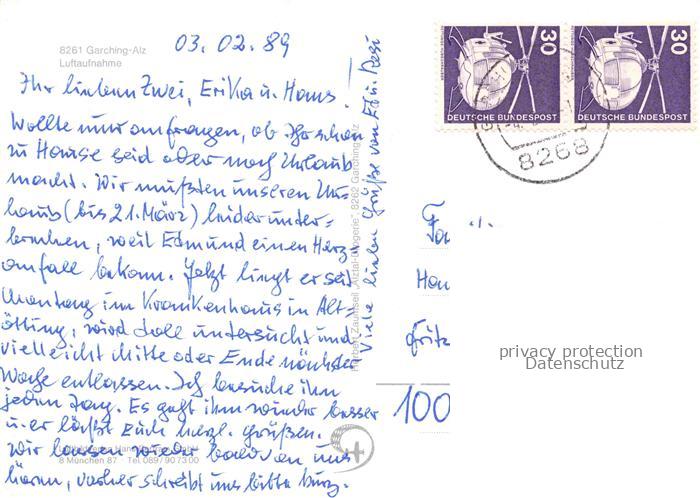 8261 Garching-Alz
Luftaufnahme
03. 02. 89
Ihr lieben Zwei, Erika u. Hans!
Wollte nur anfragen, ob Ihr schon
zu Hause seid oder noch Urlaub
macht. Wir mußten unseren Ur-
laub (bis 21. März) leider unter-
brechen, weil Edmund einen Herz-
anfall bekam. Jetzt liegt er seit
Montag im Krankenhaus in Alt-
ötting, wird toll untersucht und
vielleicht Mitte oder Ende nächster
Woche entlassen. Ich besuche ihn
jeden Tag. Es geht ihm wieder besser
u. er läßt Euch herzl. grüßen.
Wir lassen wieder bald von uns
hören, vorher schreibt uns bitte kurz.
8 München 87 · Tel 089/9073 00
Viele liebe Grüße von Ed u. Resi
8262 Garching-Alz
30
DEUTSCHE BUNDESPOST
30
DEUTSCHE BUNDESPOST
8268
Fa
Han
Fritz
100
privacy protection
Datenschutz